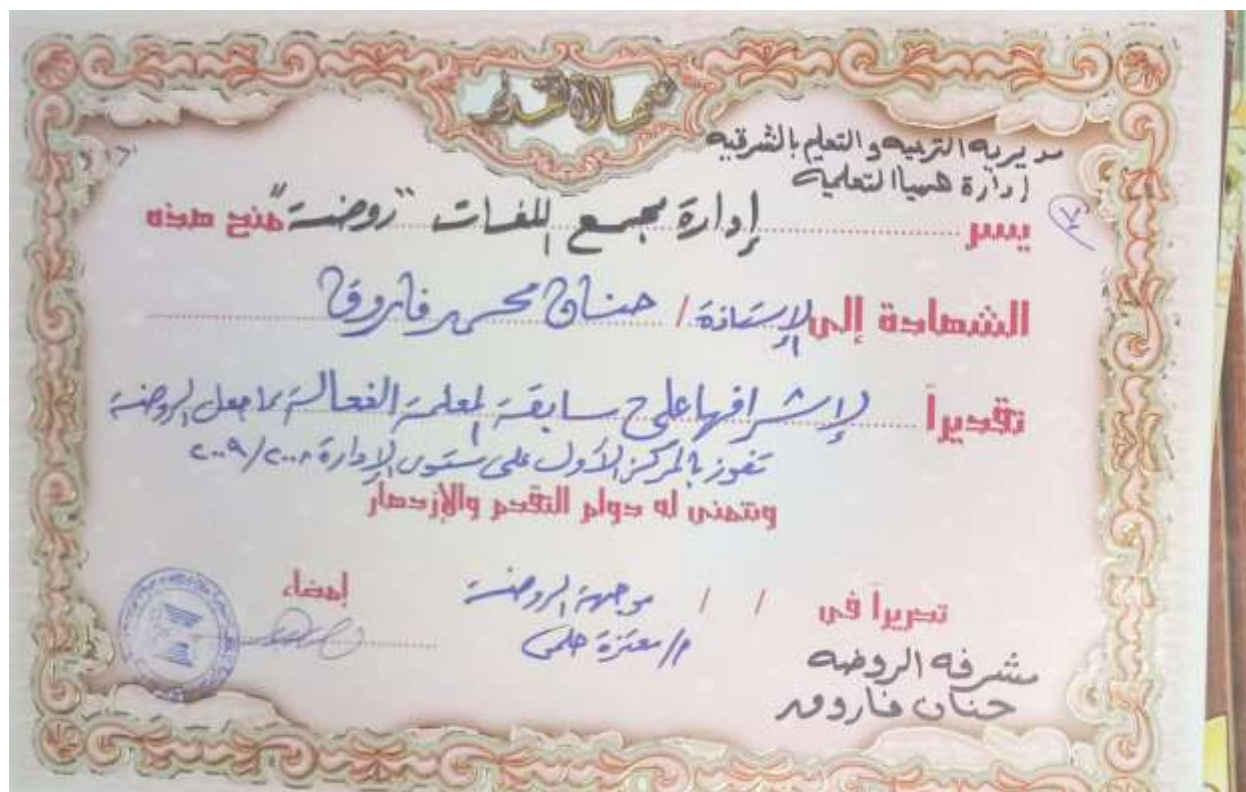 شهادة تقدير
مديرية التربيه والتعليم بالشرقيه
إدارة ههيا التعلمية
يسر إدارة مجمع اللغات "روضة" منح هذه
الشهادة إلى الأستاذة / حنان محمد فاروق
تقديراً لإشرافها على مسابقة المعلمة الفعالة مما جعل الروضة
تفوز بالمركز الأول على مستوى الإدارة ٢٠٠٨/٢٠٠٩
ونتمنى له دوام التقدم والإزدهار
تحريراً فى / / موجهة الروضة إمضاء
م/ معتزة حلمى
مشرفه الروضه
حنان فاروق